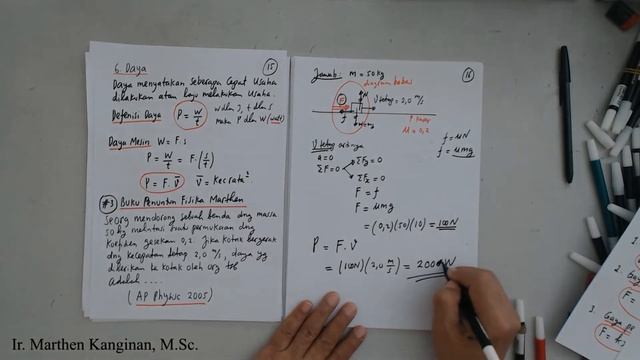 6. Daya
15
Daya menyatakan seberapa cepat usaha
dilakukan atau laju melakukan usaha.
Definisi Daya P = W/t W dlm J, t dlm s
maka P dlm W (watt)
Daya Mesin W = F.s
P = W/t = F.(s/t)
P = F.v̄ v̄ = kec rata²
#3 Buku Penuntun Fisika Marthen
Seorg mendorong sebuah benda dng massa
50 kg melintasi suatu permukaan dng
koefisien gesekan 0,2. Jika kotak bergerak
dng kecepatan tetap 2,0 m/s, daya yg
diberikan ke kotak oleh org tsb
adalah ....
(AP Physics 2005)
Jawab: m = 50 kg
16
diagram bebas
V tetap = 2,0 m/s
F
f
μ = 0,2
f = μN
f = μmg
V tetap artinya
a = 0
ΣF = 0
ΣFy = 0
ΣFx = 0
F = f
F = μmg
= (0,2)(50)(10) = 100N
P = F.v
= (100N)(2,0 m/s) = 200 W
Ir. Marthen Kanginan, M.Sc.